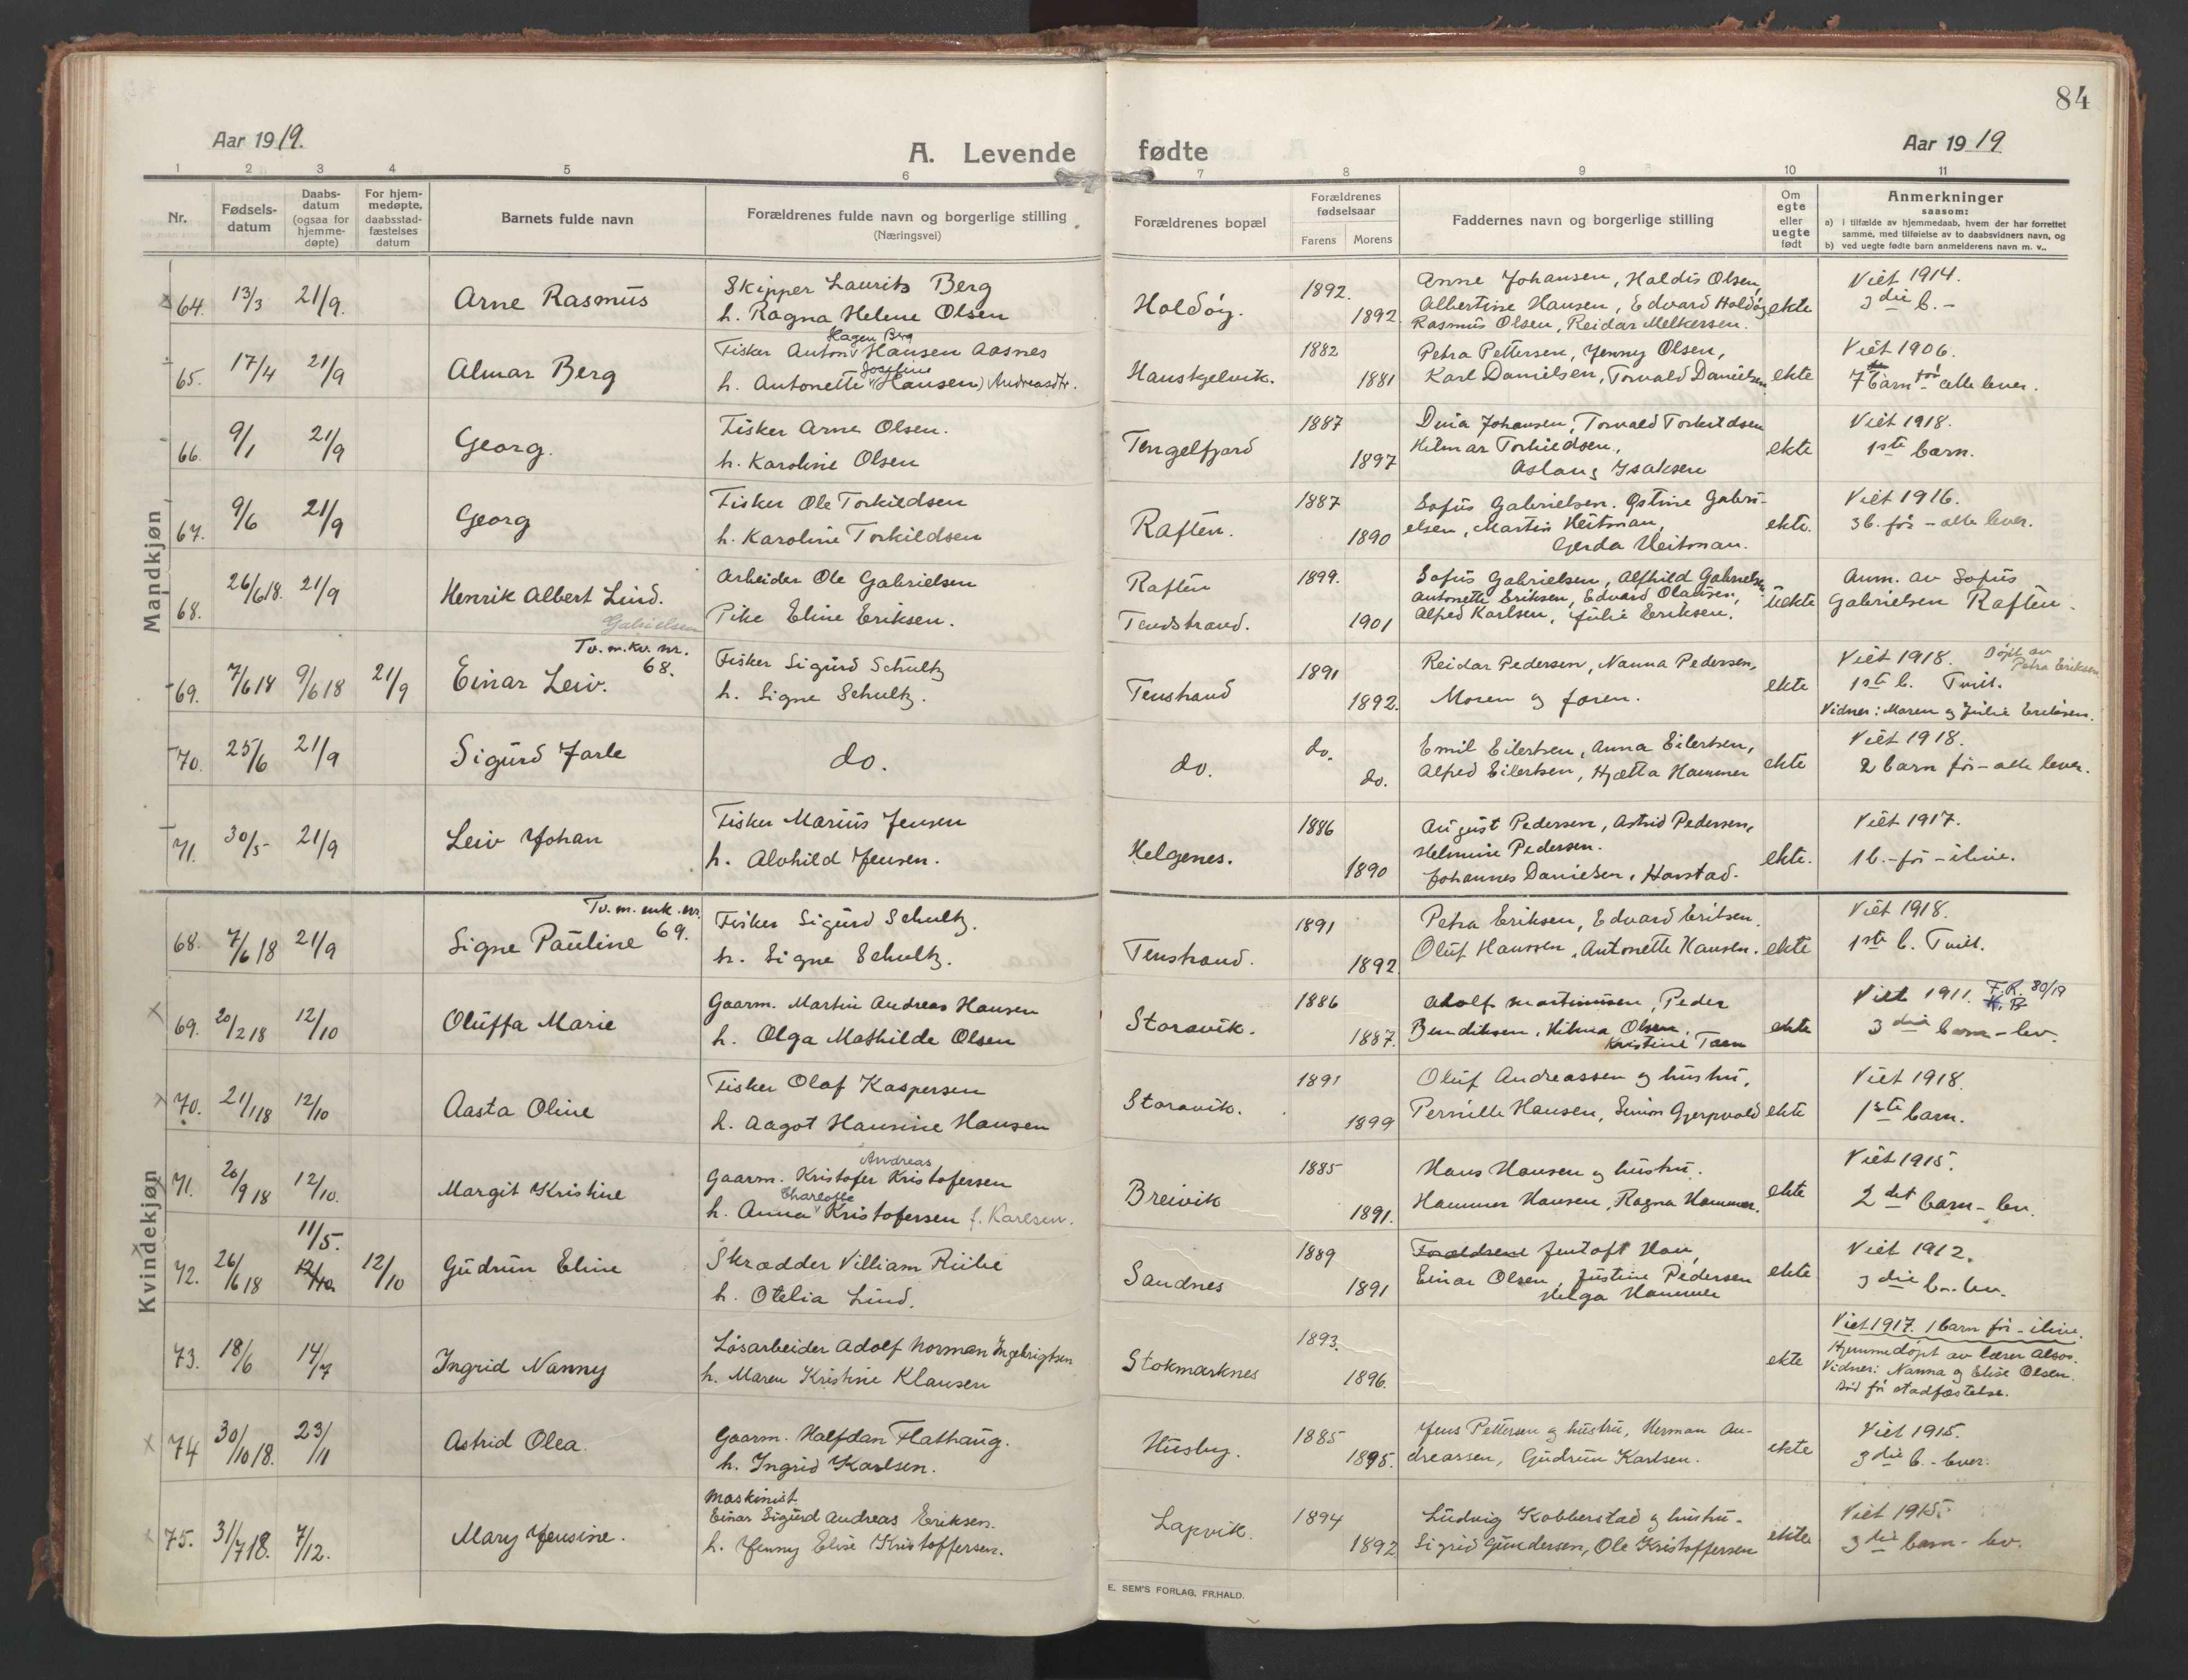 84
Aar 1919.
A. Levende fødte
Aar 1919
1 2 3 4 5 6 7 8 9 10 11
Nr.
Fødsels-
datum
Daabs-
datum
(ogsaa for
hjemme-
døpte)
For hjem-
medøpte,
daabsstad-
fæstelses
datum
Barnets fulde navn
Forældrenes fulde navn og borgerlige stilling
(Næringsvei)
Forældrenes bopæl
Forældrenes
fødselsaar
Farens Morens
Faddernes navn og borgerlige stilling
Om
egte
eller
uegte
født
Anmerkninger
saasom:
a) i tilfælde av hjemmedaab, hvem der har forrettet
samme, med tilføielse av to daabsvidners navn, og
b) ved uegte fødte barn anmelderens navn m. v..
Mandkjøn
64. 13/3 21/9. Arne Rasmus
Skipper Laurits Berg
h. Ragna Helene Olsen
Holdøy. 1892. 1892
Anne Johansen, Haldis Olsen,
Albertine Hansen, Edvard Holdøy
Rasmus Olsen, Reidar Melkersen.
ekte
Viet 1914.
3die b. -
65. 17/4 21/9 Almar Berg
Hagen Berg
Fisker Anton Hansen Aasnes
Josefine
h. Antonette (Hansen) Andreasdtr.
Hanskjelvik. 1882 1881
Petra Pettersen, Jenny Olsen,
Karl Danielsen, Torvald Danielsen
ekte
Viet 1906.
7 barn før - alle lever.
66. 9/1 21/9 Georg.
Fisker Arne Olsen.
h. Karoline Olsen
Tengelfjord 1887 1897
Dina Johansen, Torvald Torkildsen
Hilmar Torkildsen,
Aslaug Isaksen
ekte
Viet 1918.
1ste barn.
67. 9/6 21/9 Georg
Fisker Ole Torkildsen
h. Karoline Torkildsen
Raften. 1887 1890
Sofus Gabrielsen. Østine Gabri-
elsen, Martin Heitman,
Gerda Heitman.
ekte.
Viet 1916.
3 b. før - alle lever.
68. 26/6 18. 21/9 Henrik Albert Lind.
Gabrielsen
Arbeider Ole Gabrielsen
Pike Eline Eriksen.
Raften
Tendstrand. 1899. 1901
Sofus Gabrielsen, Alfhild Gabrielsen
Antonette Eriksen, Edvard Olausen,
Alfred Karlsen, Julie Eriksen.
uekte
Anm. av Sofus
Gabrielsen Raften.
Tv. m. kv. nr.
68.
69. 7/6 18 9/6 18 21/9 Einar Leiv.
Fisker Sigurd Schultz
h. Signe Schultz.
Tenstrand 1891 1892.
Reidar Pedersen, Nanna Pedersen,
Moren og faren.
ekte
Viet 1918. Døpt av
Petra Eriksen
1ste b. Tvill.
Vidner: Maren og Julie Eriksen.
70. 25/6 21/9 Sigurd Jarle
do.
do. do. do.
Emil Eilertsen, Anna Eilertsen,
Alfred Eilertsen, Hjætta Hammer
ekte
Viet 1918.
2 barn før - alle lever.
71. 30/5 21/9 Leiv Johan
Fisker Marius Jensen
h. Alvhild Jensen.
Helgenes. 1886 1890
August Pedersen, Astrid Pedersen,
Helmine Pedersen.
Johannes Danielsen, Harstad.
ekte.
Viet 1917.
1 b. - før - ilive.
Kvindekjøn
Tv. m. mk. nr.
68. 7/6 18 21/9 Signe Pauline 69.
Fisker Sigurd Schultz.
h. Signe Schultz.
Tenstrand. 1891 1892
Petra Eriksen, Edvard Eriksen.
Oluf Hanssen, Antonette Hansen.
ekte
Viet 1918.
1ste b. Tvill.
69. 20/2 18 12/10 Oluffa Marie
Gaarm. Martin Andreas Hansen
h. Olga Mathilde Olsen
Storavik. 1886 1887.
Adolf Martinusen, Peder
Bendiksen, Hilma Olsen,
Kristine Tarn
ekte
Viet 1911. F. R. 30/19
K. B
3die barn - lev.
70. 21/1 18 12/10 Aasta Oline
Fisker Olaf Kaspersen
h. Aagot Hansine Hansen
Storavik. 1891 1899
Oluf Andreassen og hustru.
Pernille Hansen, Simon Gjerpvold
ekte
Viet 1918.
1ste barn.
71. 20/9 18 12/10. Margit Kristine
Andreas
Gaarm. Kristofer Kristofersen
Charlotte
h. Anna Kristofersen f. Karlsen.
Breivik 1885 1891.
Hans Hansen og hustru.
Hammer Hansen, Ragna Hammer.
ekte
Viet 1915.
2det barn - lev.
11/5.
72. 26/6 18 12/10 12/10 Gudrun Eline
Skrædder Villiam Riibe
h. Otelia Lind.
Sandnes 1889 1891
Forældrene Jentoft Hov,
Einar Olsen, Justine Pedersen
Helga Hammer
ekte
Viet 1912.
3die b. - lev.
73. 18/6 14/7 Ingrid Nanny
Løsarbeider Adolf Norman Ingebrigtsen
h. Maren Kristine Klausen
Stokmarknes 1893. 1896.
ekte
Viet 1917. 1 barn før - ilive.
Hjemmedøpt av lærer Alsos.
Vidner: Nanna og Elise Olsen.
Død før stadfæstelse.
74 30/10 18. 23/11 Astrid Olea.
Gaarm. Halfdan Flathaug.
h. Ingrid Karlsen.
Husby. 1885 1895.
Jens Pettersen og hustru, Herman An-
dreassen, Gudrun Karlsen.
ekte
Viet 1915.
3die b. - lever.
75. 31/7 18. 7/12. Mary Jensine.
Maskinist
Einar Sigurd Andreas Eriksen.
h. Jenny Elise Kristoffersen.
Lapvik. 1894 1892
Ludvig Kobberstad og hustru -
Sigrid Gundersen, Ole Kristoffersen
ekte
Viet 1915.
3die barn - lev.
E. SEM'S FORLAG, FR.HALD.